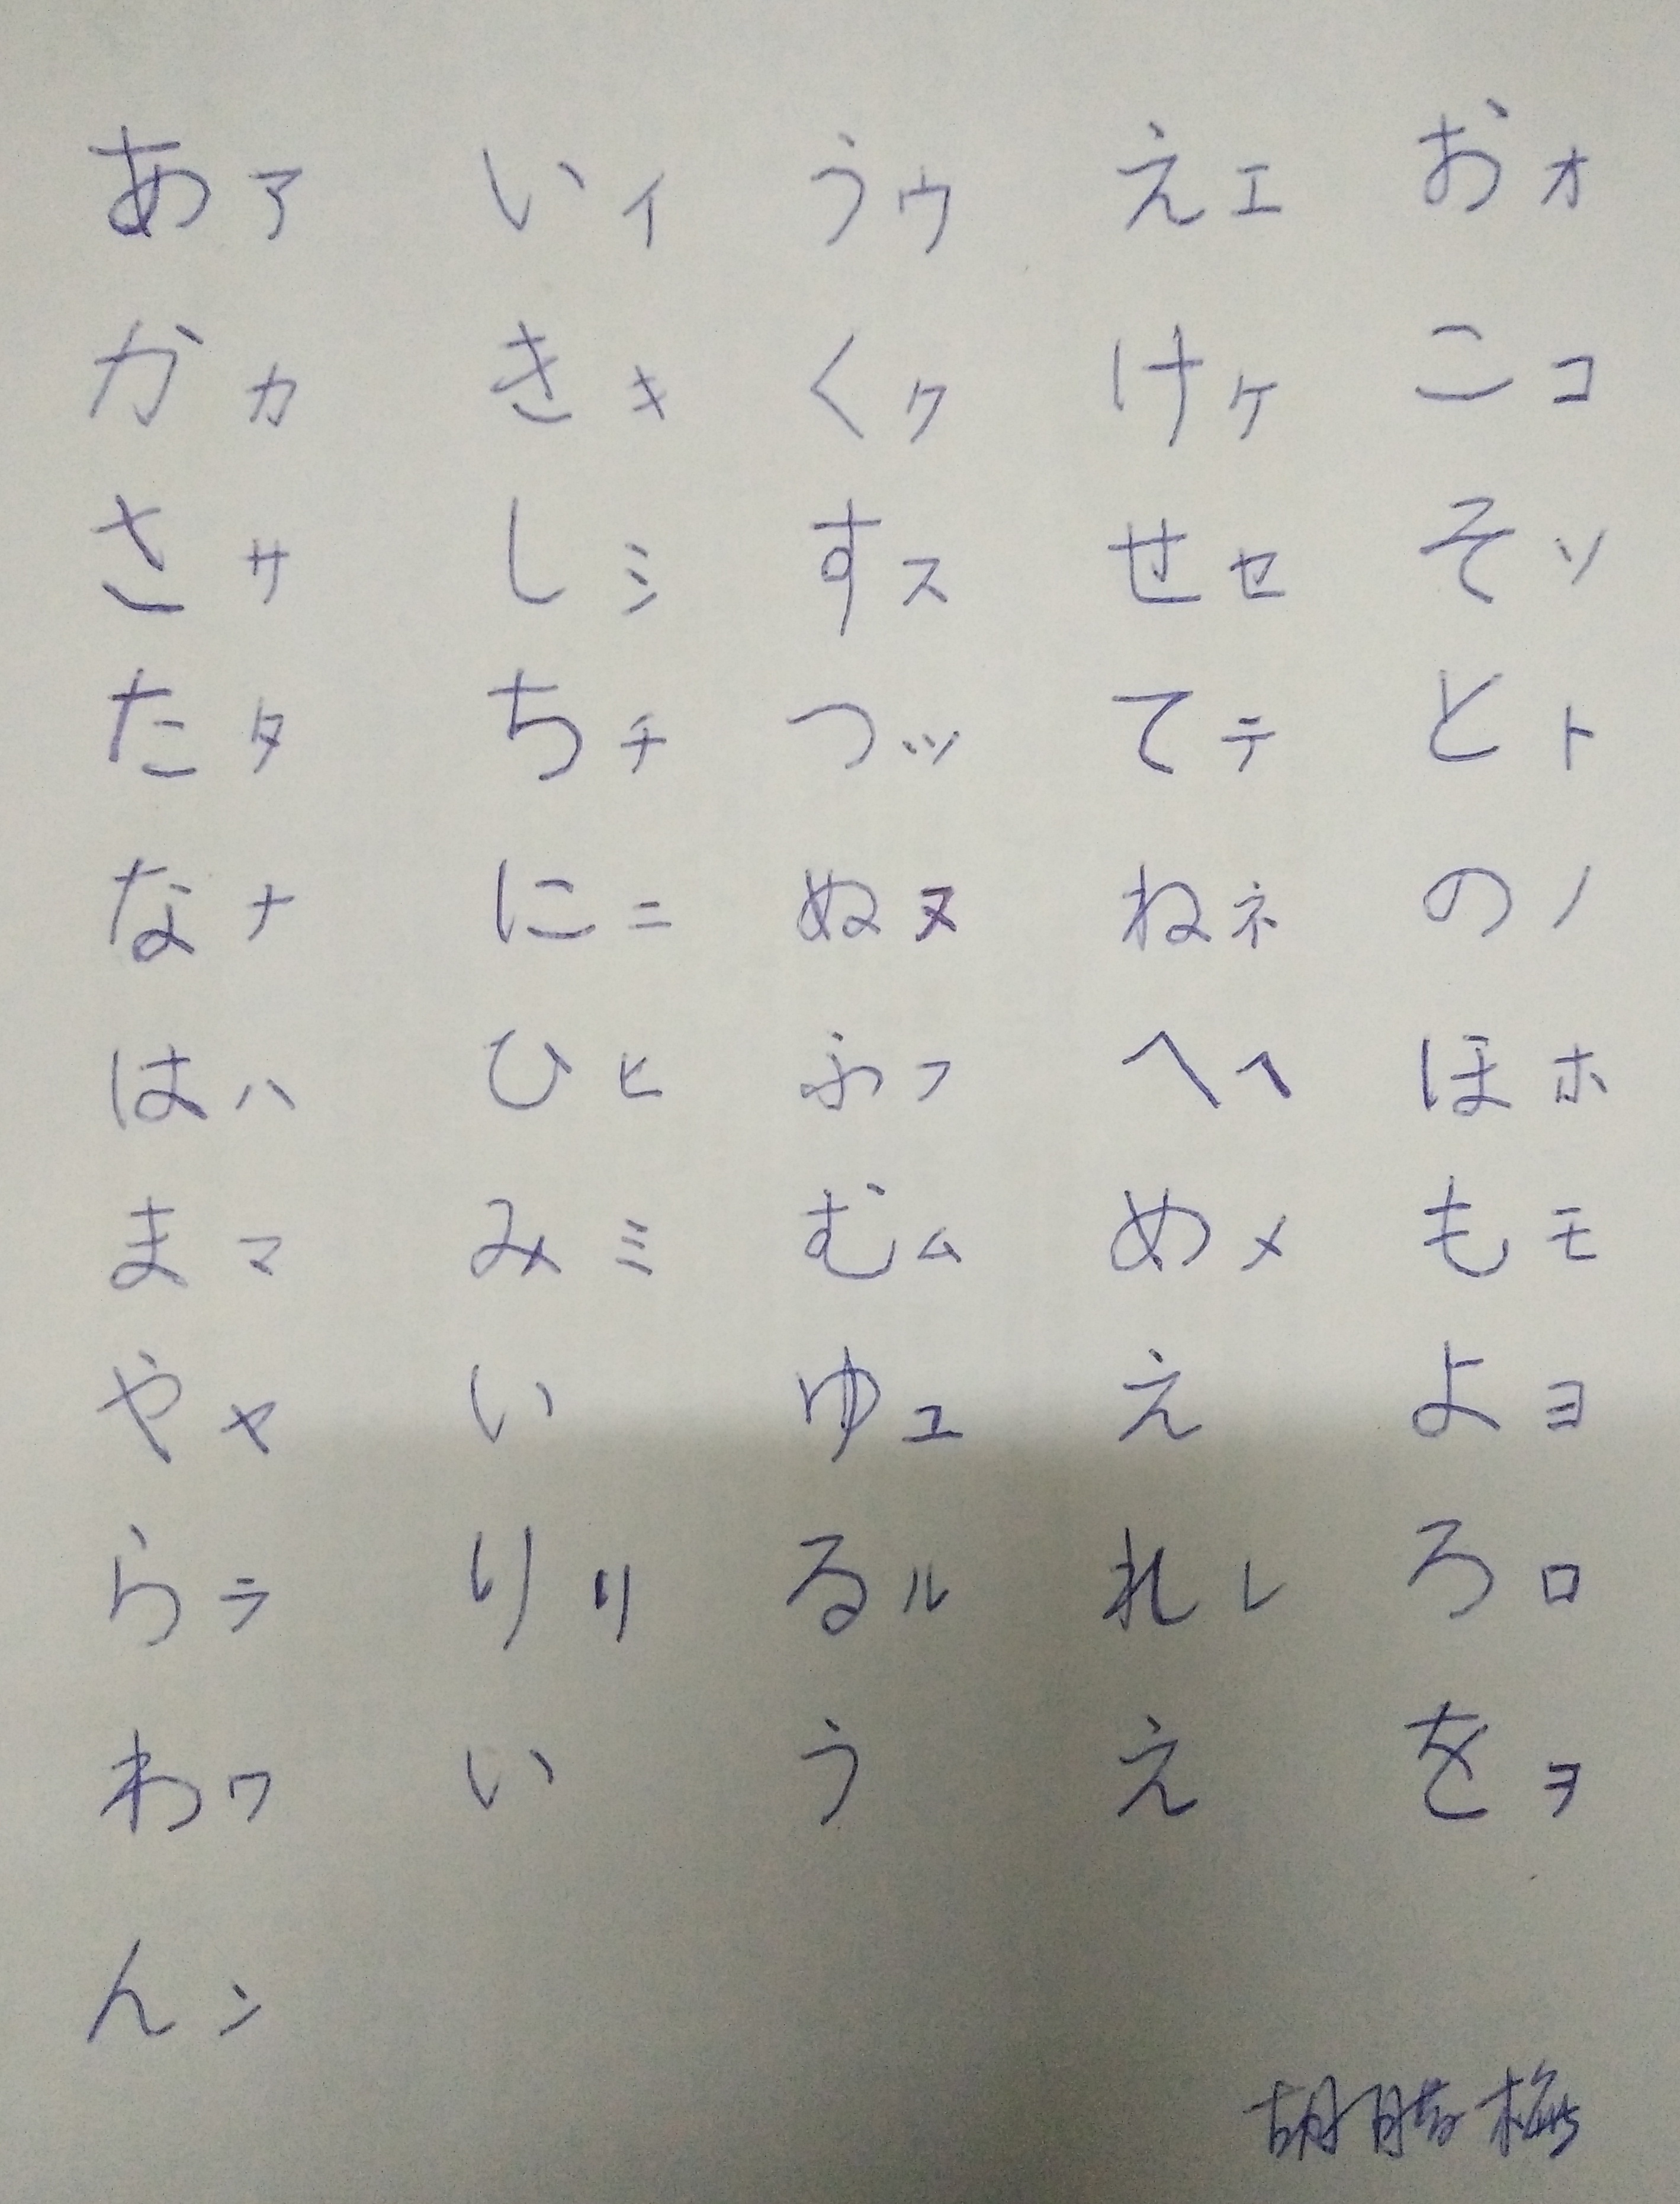 あ ア い イ う ウ え エ お オ
か カ き キ く ク け ケ こ コ
さ サ し シ す ス せ セ そ ソ
た タ ち チ つ ツ て テ と ト
な ナ に ニ ぬ ヌ ね ネ の ノ
は ハ ひ ヒ ふ フ へ ヘ ほ ホ
ま マ み ミ む ム め メ も モ
や ヤ い ゆ ユ え よ ヨ
ら ラ り リ る ル れ レ ろ ロ
わ ワ い う え を ヲ
ん ン